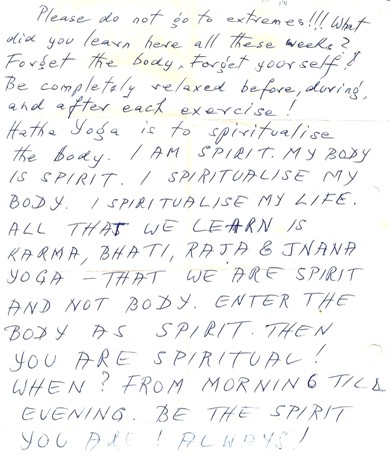 Please do not go to extremes!!! What
did you learn here all these weeks?
Forget the body, forget yourself!
Be completely relaxed before, during,
and after each exercise!
Hatha Yoga is to spiritualise
the body. I AM SPIRIT. MY BODY
IS SPIRIT. I SPIRITUALISE MY
BODY. I SPIRITUALISE MY LIFE.
ALL THAT WE LEARN IS
KARMA, BHATI, RAJA & JNANA
YOGA – THAT WE ARE SPIRIT
AND NOT BODY. ENTER THE
BODY AS SPIRIT. THEN
YOU ARE SPIRITUAL!
WHEN? FROM MORNING TILL
EVENING. BE THE SPIRIT
YOU ARE! ALWAYS!